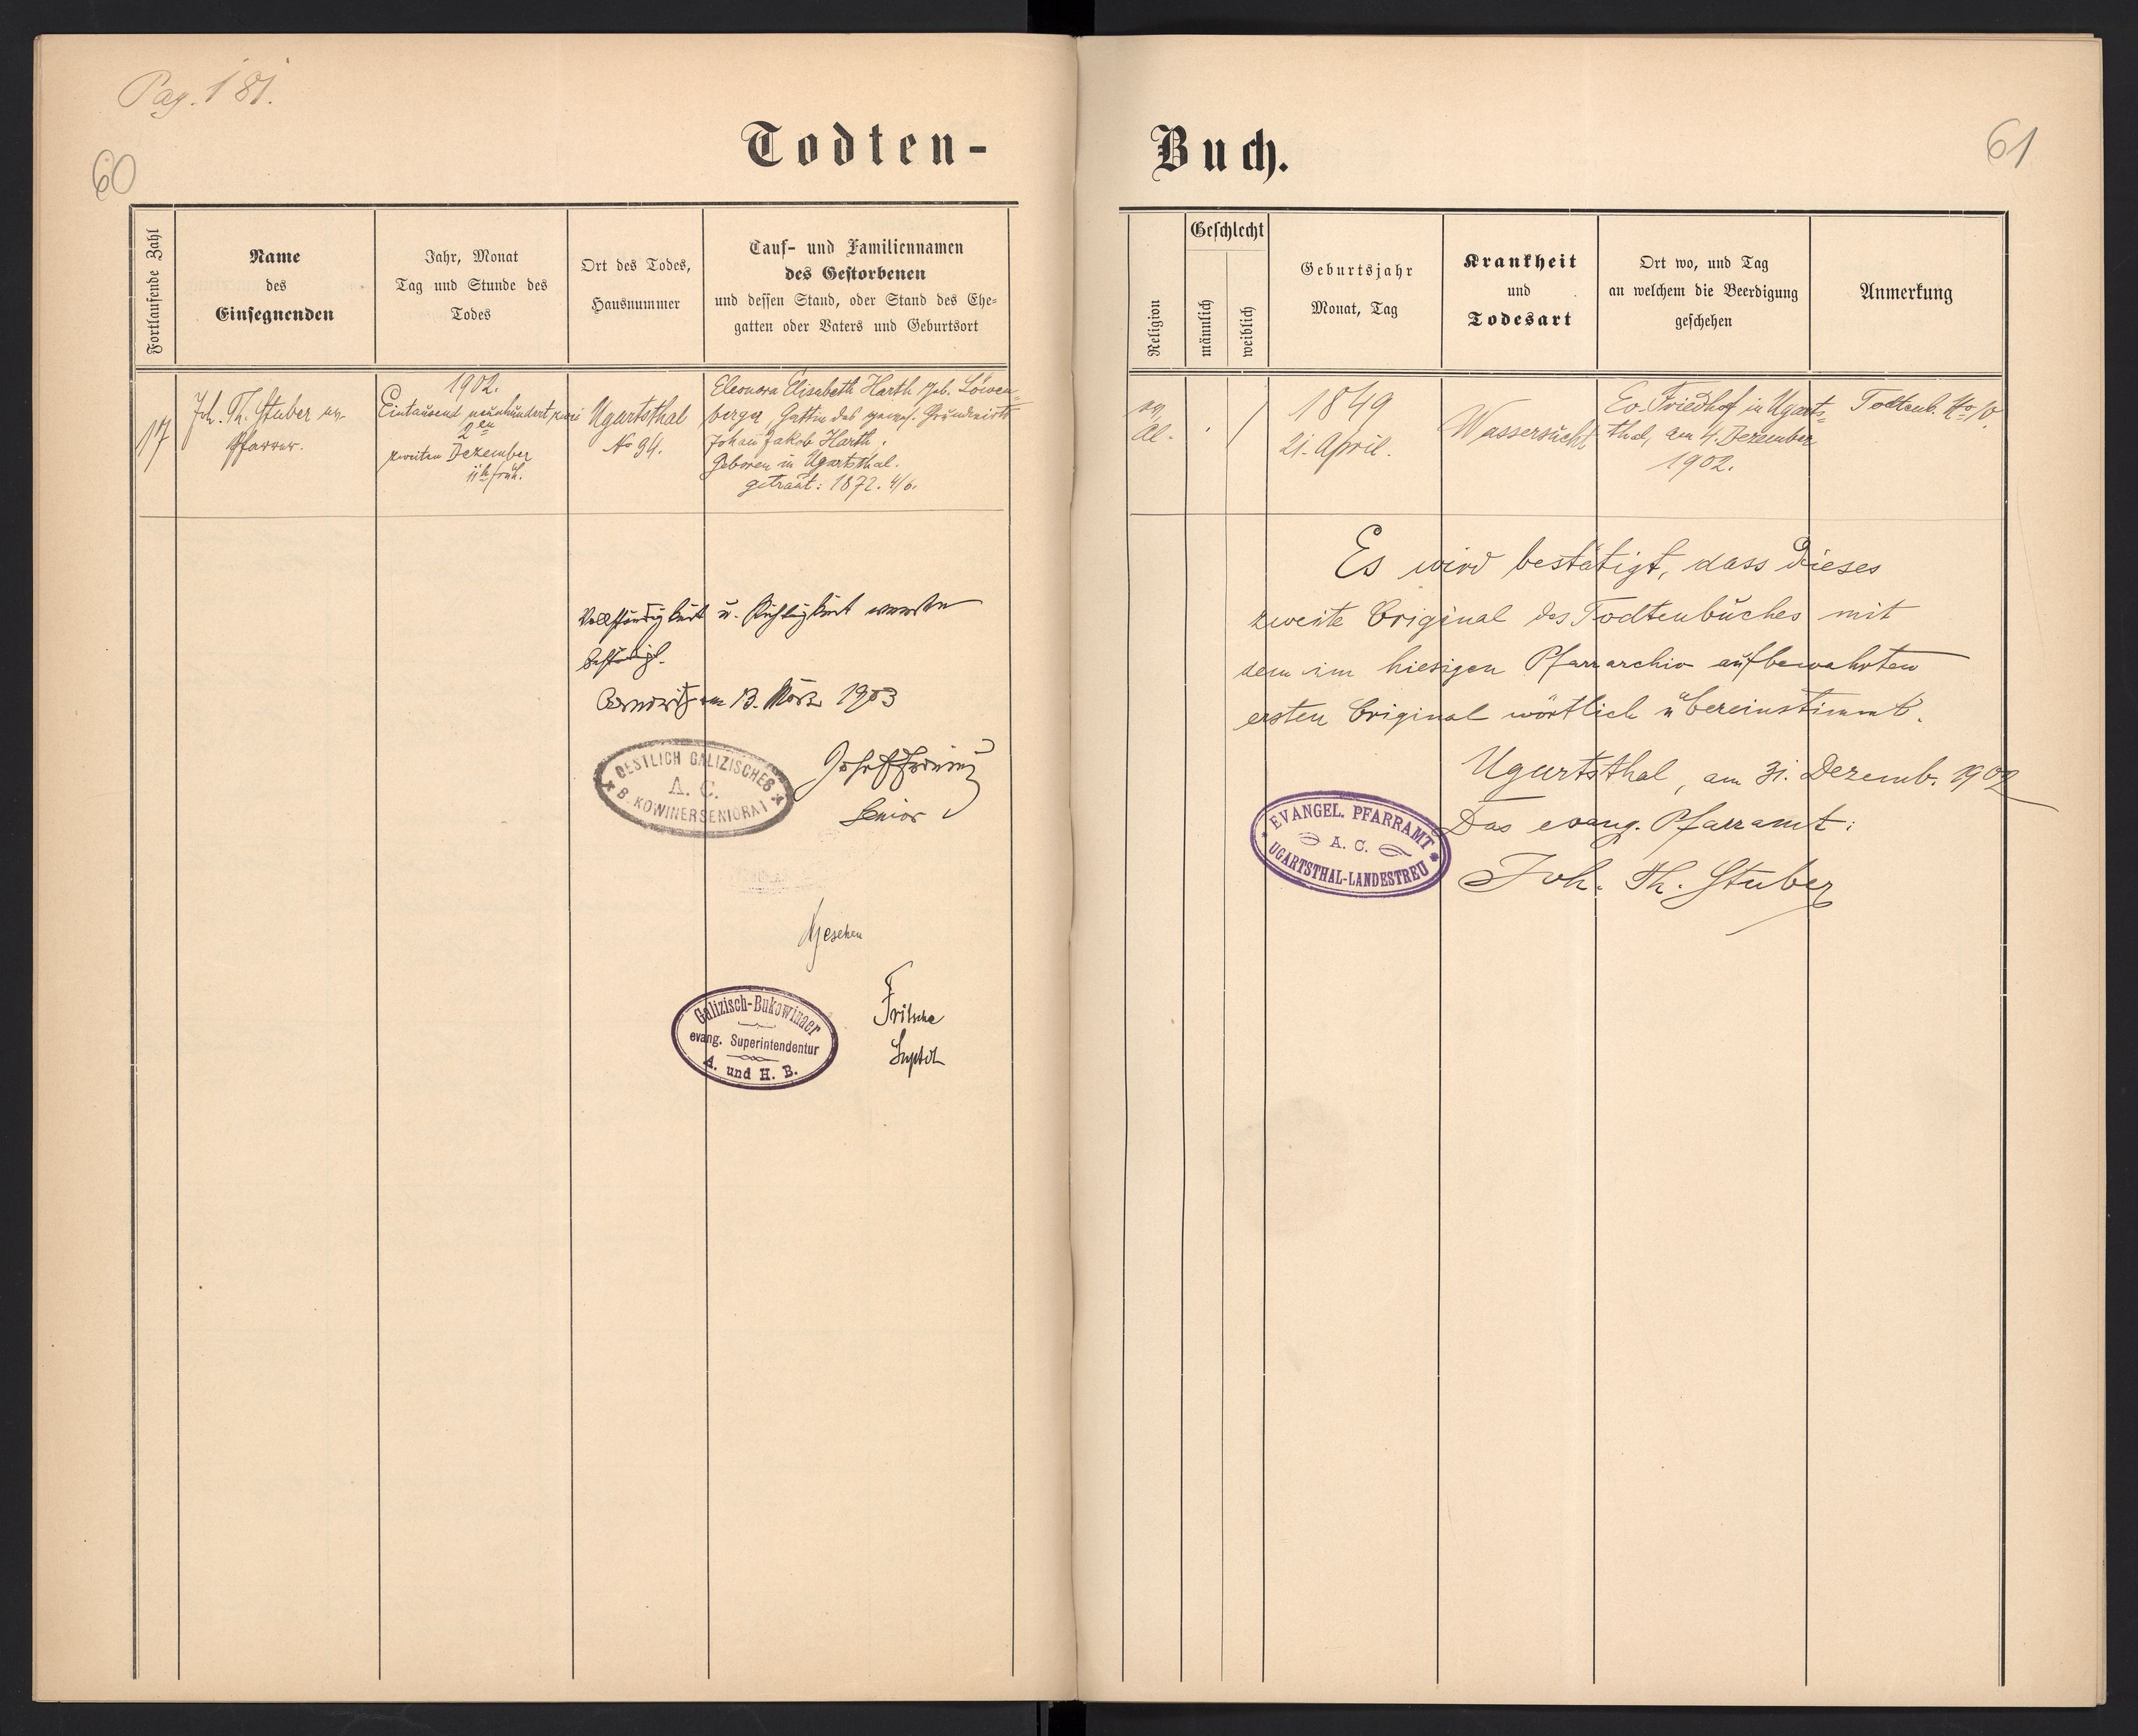 Pag. 181.
60
Todten-
Fortlaufende Zahl
Name
des
Einsegnenden
Jahr, Monat
Tag und Stunde des
Todes
Ort des Todes,
Hausnummer
Tauf- und Familiennamen
des Gestorbenen
und dessen Stand, oder Stand des Ehe-
gatten oder Vaters und Geburtsort
17
Joh. Th. Stuber
Pfarrer.
1902.
Eintausend neunhundert zwei
2ten
zweiten Dezember
früh.
Ugartsthal
No 94.
Eleonora Elisabeth Harth geb. Löwen-
berger, Gattin des Grundwirts
Johann Jakob Harth.
Geboren in Ugartsthal.
getraut: 1872. 4/6.
Vollständigkeit u. Richtigkeit werden
bestätigt.
am 13. März 1903
OESTLICH GALIZISCHES
A. C.
BUKOWINERSENIORAT
Josef
Senior
Gesehen
Galizisch-Bukowinaer
evang. Superintendentur
A. und H. B.
Fritsche
Suptdt
Buch.
61
Religion
Geschlecht
männlich
weiblich
Geburtsjahr
Monat, Tag
Krankheit
und
Todesart
Ort wo, und Tag
an welchem die Beerdigung
geschehen
Anmerkung
1849
21. April.
Wassersucht
Ev. Friedhof in Ugarts-
thal, am 4. Dezember
1902.
Todtenb. No 10.
Es wird bestätigt, dass dieses
zweite Original des Todtenbuches mit
dem im hiesigen Pfarrarchiv aufbewahrten
ersten Original wörtlich übereinstimmt.
Ugartsthal, am 31. Dezemb. 1902
Das evang. Pfarramt:
Joh. Th. Stuber
EVANGEL. PFARRAMT
A. C.
UGARTSTHAL-LANDESTREU